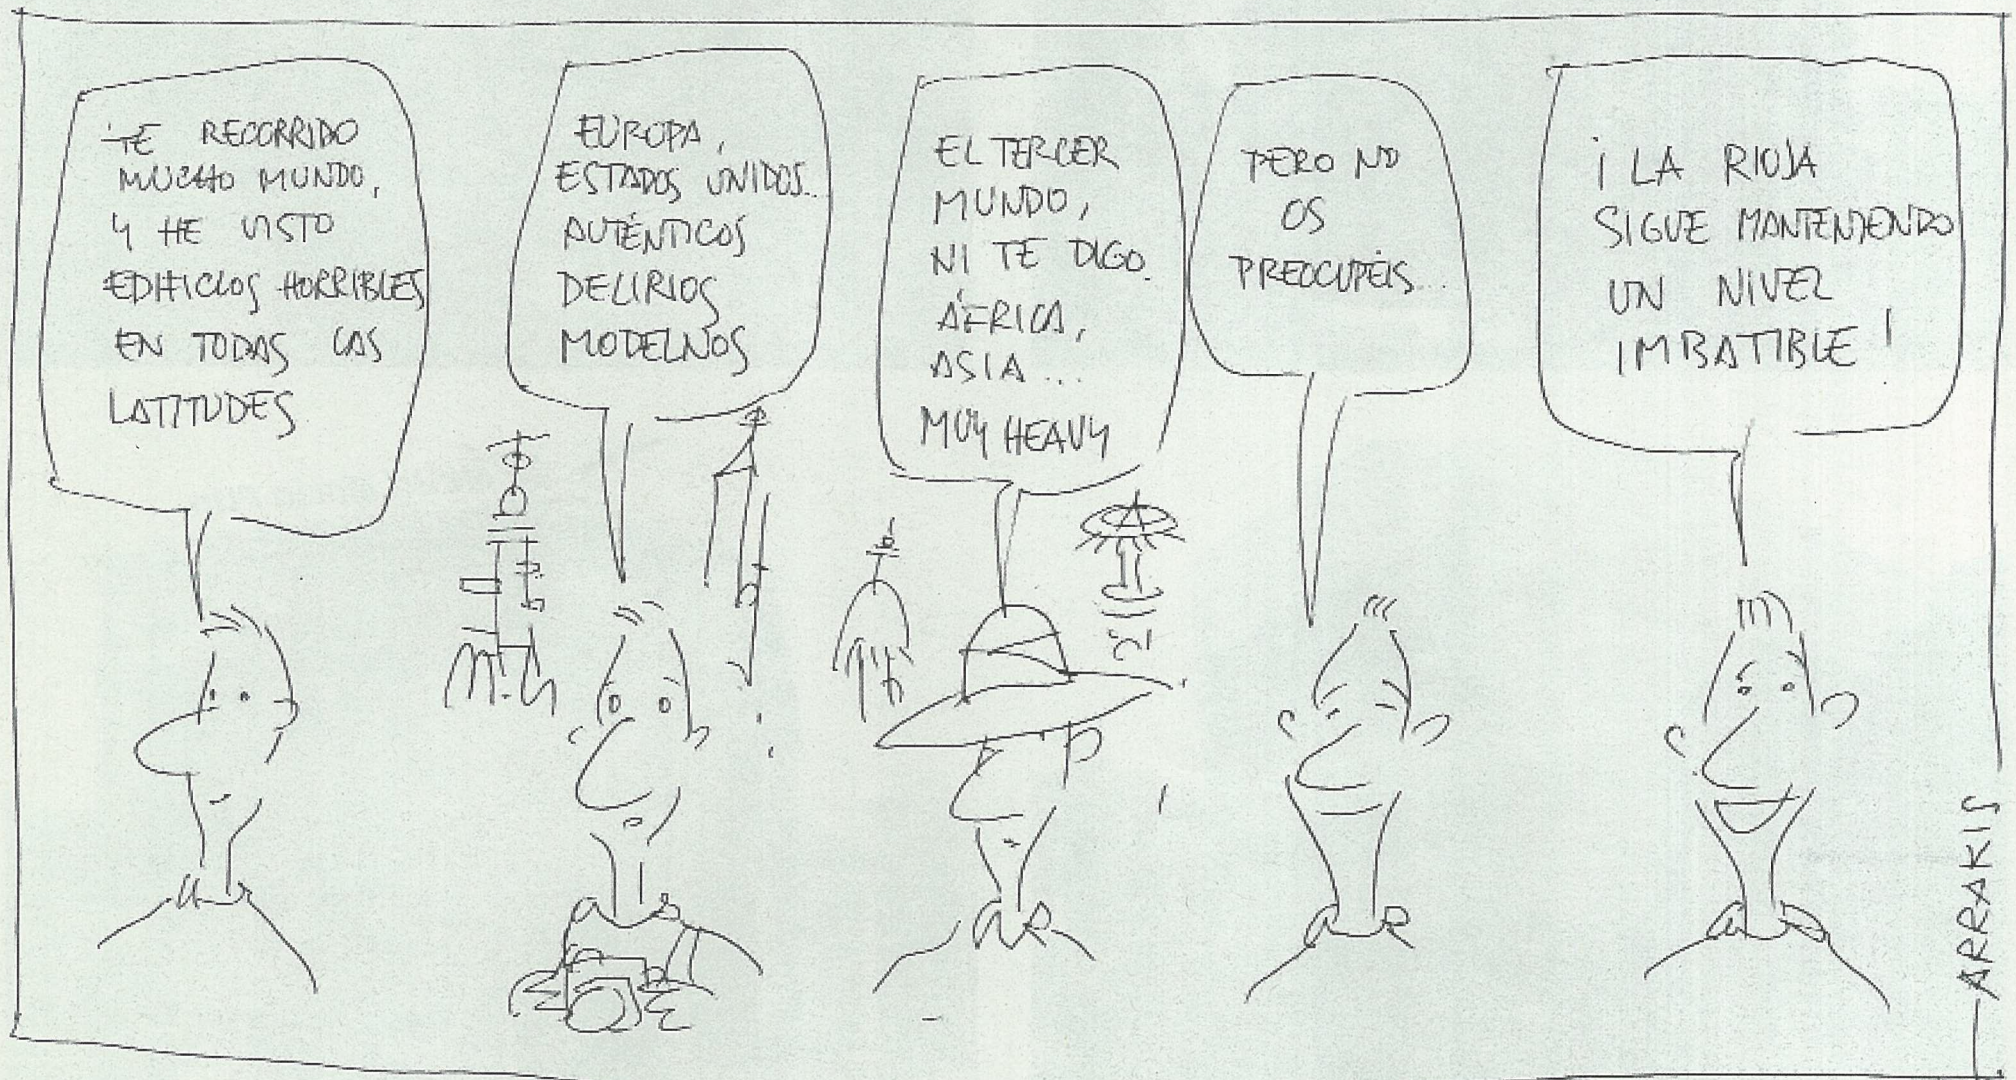 TE RECORRIDO
MUCHO MUNDO,
Y HE VISTO
EDIFICIOS HORRIBLES
EN TODAS LAS
LATITUDES
EUROPA,
ESTADOS UNIDOS...
AUTÉNTICOS
DELIRIOS
MODELNOS
EL TERCER
MUNDO,
NI TE DIGO.
ÁFRICA,
ASIA...
MUY HEAVY
PERO NO
OS
PREOCUPÉIS...
¡LA RIOJA
SIGUE MANTENIENDO
UN NIVEL
IMBATIBLE!
ARRAKIS